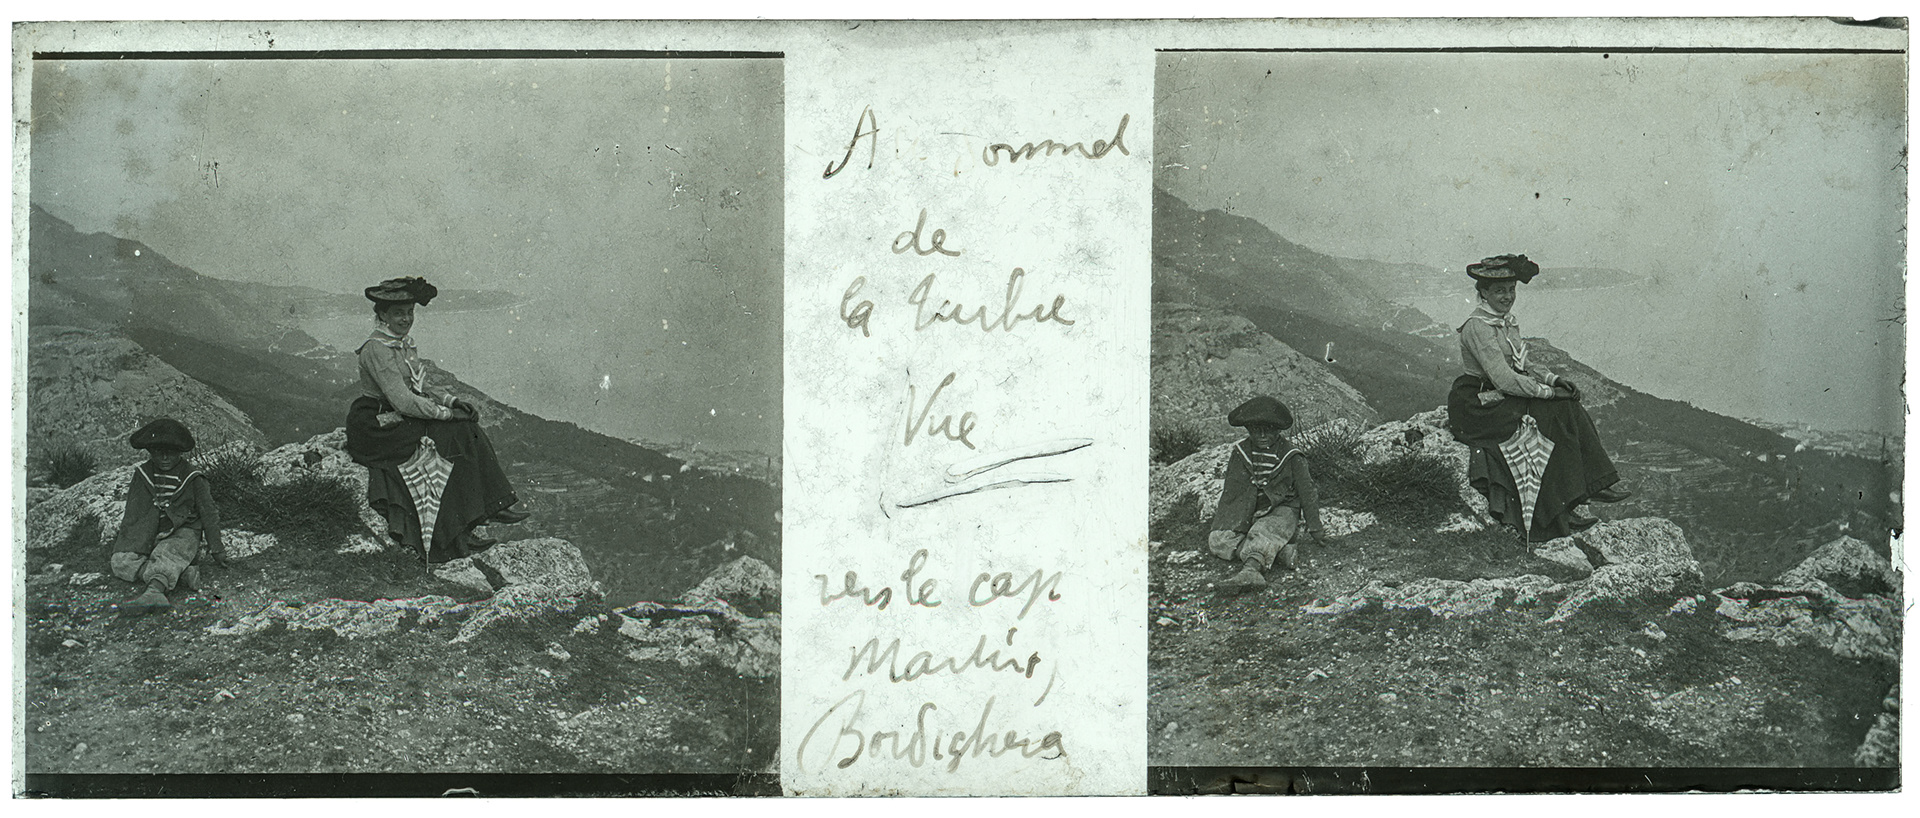 A
de
la Turbie
Vue
vers le cap
Martin,
Bordighera